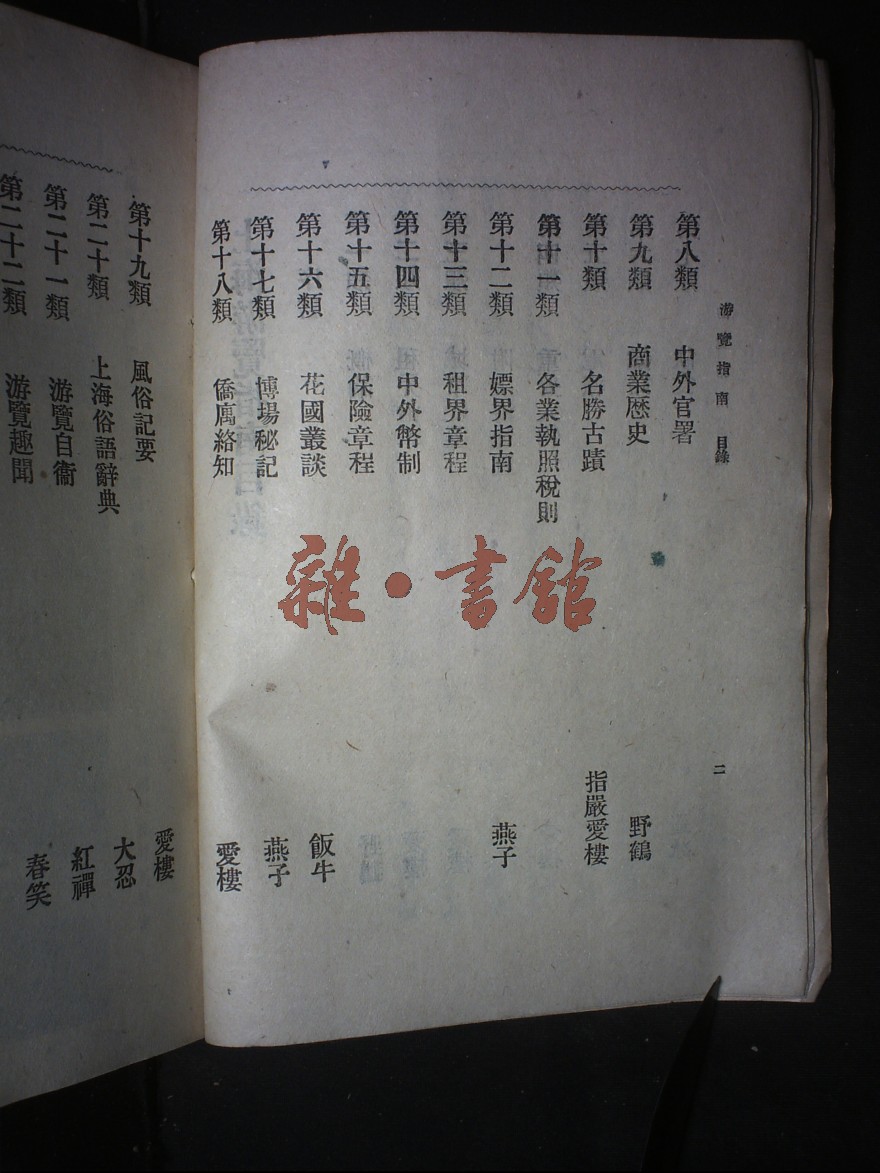 游覽指南 目錄
二
第八類 中外官署
第九類 商業歷史 野鶴
第十類 名勝古蹟 指嚴愛樓
第十一類 各業執照稅則
第十二類 嫖界指南 燕子
第十三類 租界章程
第十四類 中外幣制
第十五類 保險章程
第十六類 花國叢談 飯牛
第十七類 博場秘記 燕子
第十八類 僑寓絡知 愛樓
第十九類 風俗記要 愛樓
第二十類 上海俗語辭典 大忍
第二十一類 游覽自衞 紅禪
第二十二類 游覽趣聞 春笑
雜·書館